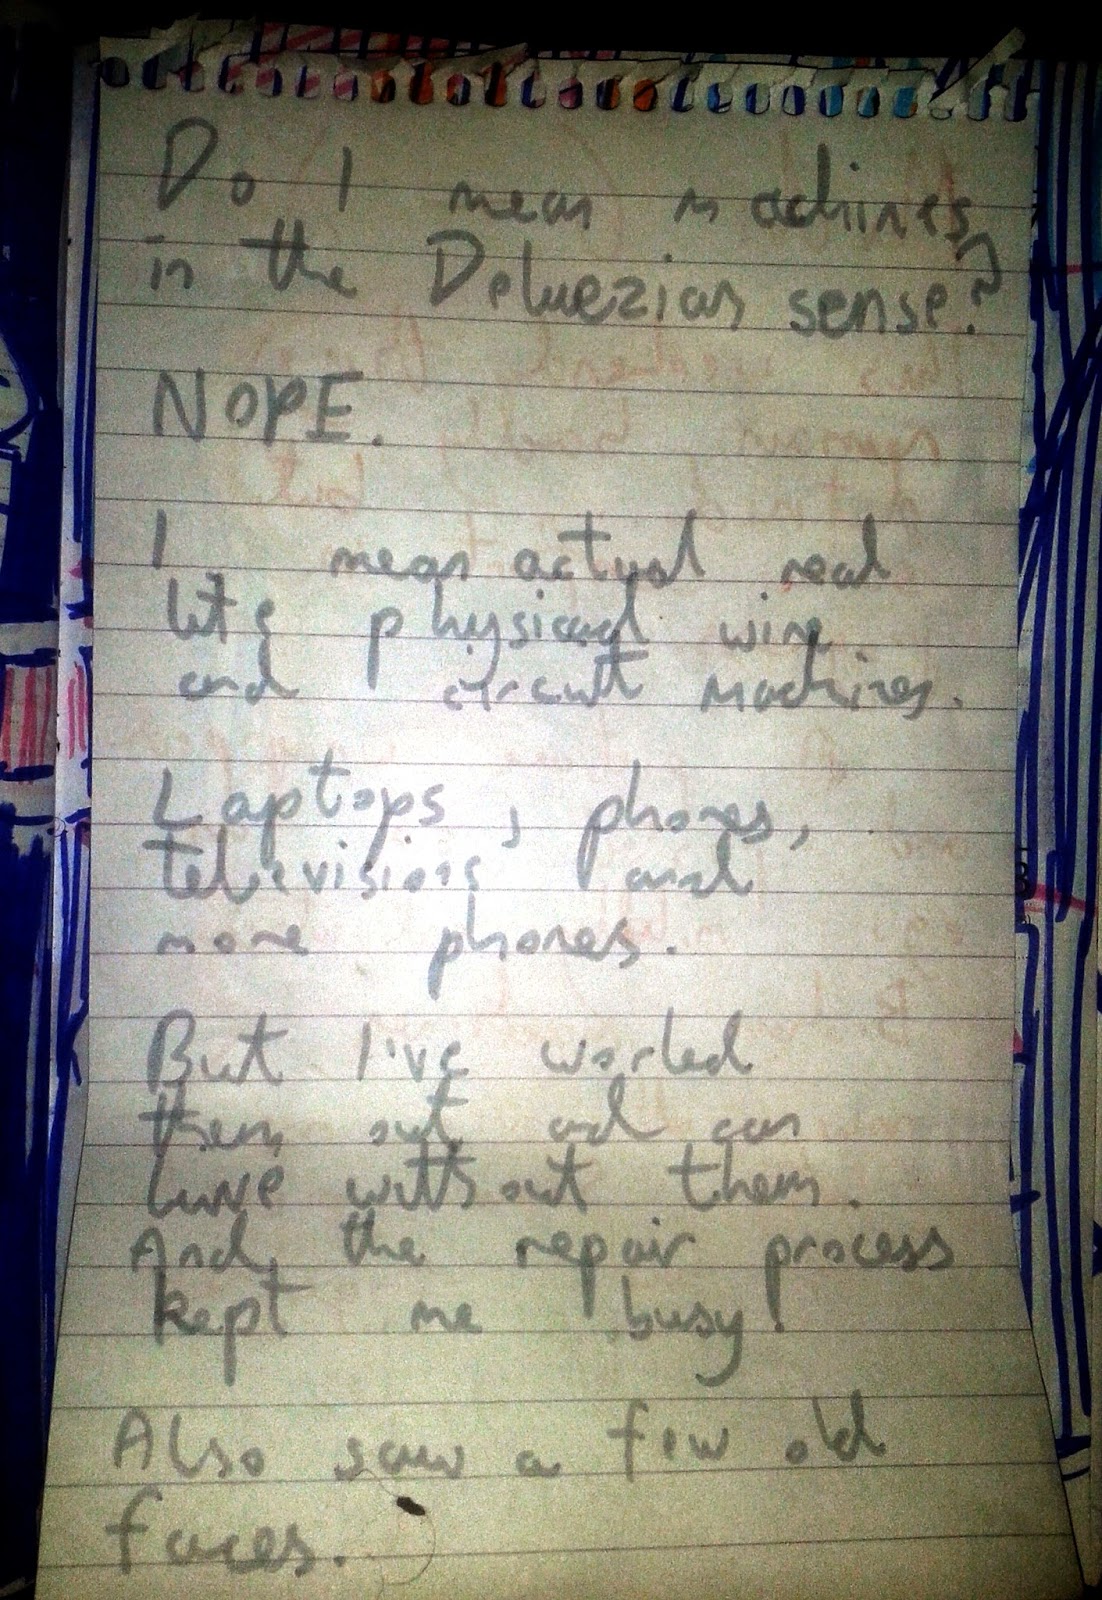 Do I mean machines,
in the Deluezian sense?
NOPE.
I mean actual real
life physical wire
and circuit machines.
Laptops, phones,
televisions and
more phones.
But I've worked
them out and can
live without them.
And, the repair process
kept me busy!
Also saw a few old
faces.